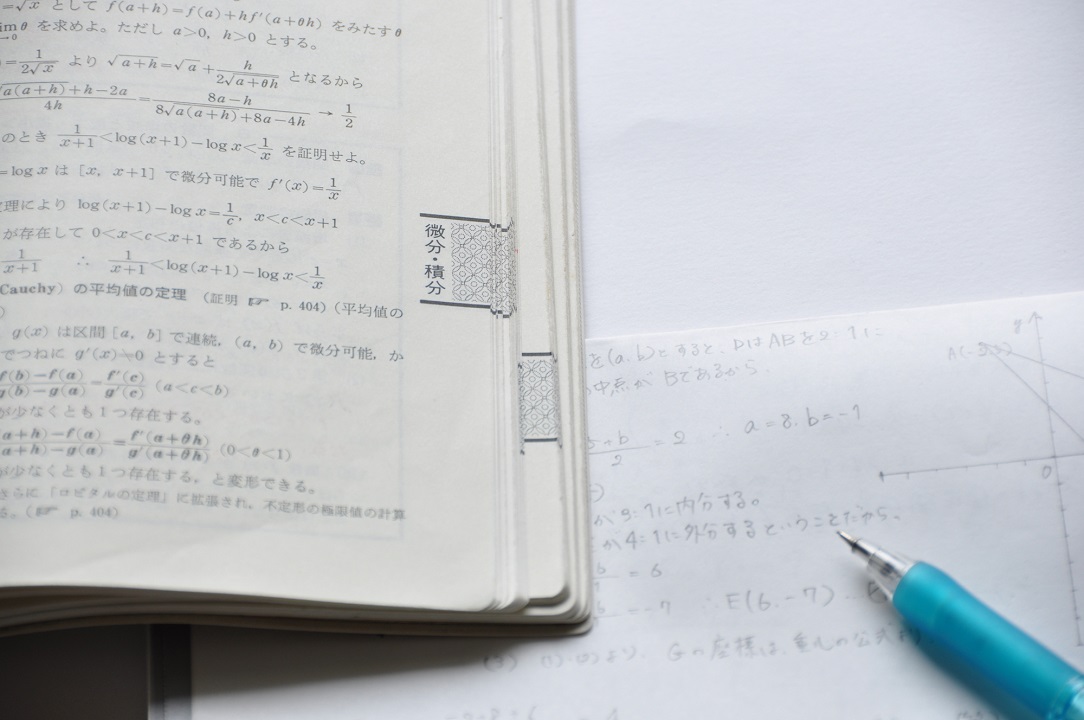 =√x として f(a+h)=f(a)+hf′(a+θh) をみたす θ
lim θ を求めよ。ただし a>0, h>0 とする。
=1/(2√x) より √(a+h)=√a+h/(2√(a+θh)) となるから
√(a(a+h))+h−2a/4h=(8a−h)/(8√(a(a+h))+8a−4h) → 1/2
のとき 1/(x+1)<log(x+1)−log x<1/x を証明せよ。
=log x は [x, x+1] で微分可能で f′(x)=1/x
理により log(x+1)−log x=1/c, x<c<x+1
が存在して 0<x<c<x+1 であるから
1/(x+1) ∴ 1/(x+1)<log(x+1)−log x<1/x
Cauchy) の平均値の定理 (証明 ☞ p. 404) (平均値の
g(x) は区間 [a, b] で連続, (a, b) で微分可能, か
でつねに g′(x)≠0 とすると
(f(b)−f(a))/(g(b)−g(a))=f′(c)/g′(c) (a<c<b)
が少なくとも1つ存在する。
(a+h)−f(a)/(a+h)−g(a)=f′(a+θh)/g′(a+θh) (0<θ<1)
が少なくとも1つ存在する, と変形できる。
さらに「ロピタルの定理」に拡張され, 不定形の極限値の計算
る。(☞ p. 404)
微分・積分
を(a, b)とすると、DはABを2:1に
中点が Bであるから、
5+b/2 = 2 ∴ a=8, b=-1
が9:1に内分する。
が4:1に外分するということだから、
= 6
= -7 ∴ E(6, -7)
(3) (1)・(2)より、Gの座標は、重心の公式より
y
0